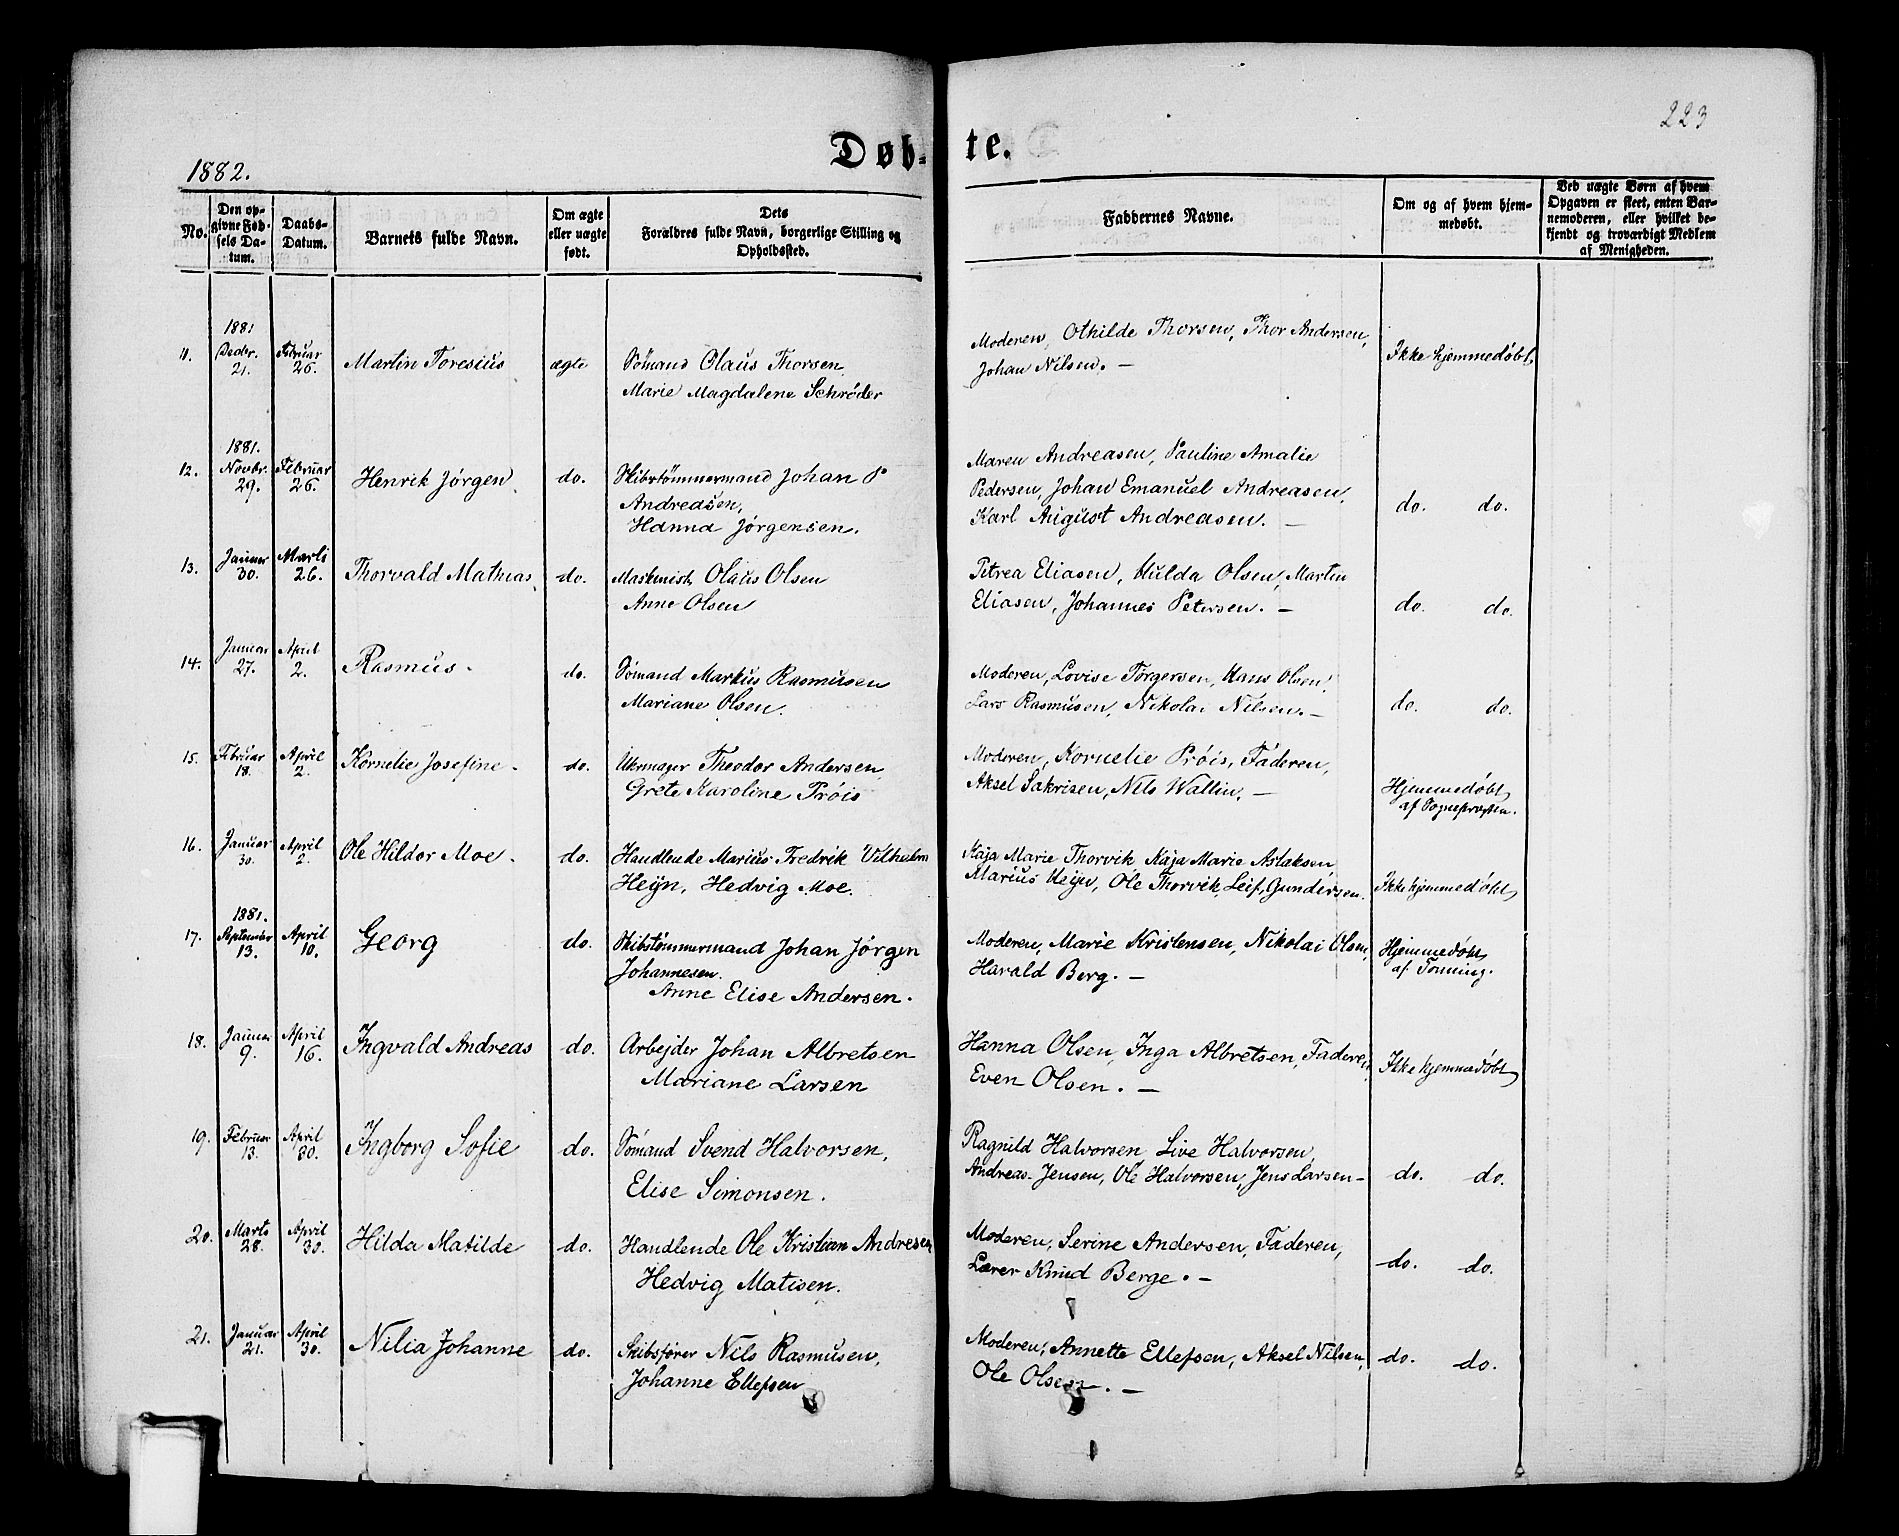 223
Døb- te.
1882.
No.
Den op-
givne Fød-
sels Da-
tum.
Daabs-
Datum.
Barnets fulde Navn.
Om ægte
eller uægte
født.
Dets
Forældres fulde Navn, borgerlige Stilling og
Opholdssted.
Faddernes Navne.
Om og af hvem hjem-
medøbt.
Ved uægte Børn af hvem
Opgaven er skeet, enten Bar-
nemoderen, eller hvilket be-
kjendt og troværdigt Medlem
af Menigheden.
11.
1881
Decbr.
21.
Februar
26.
Martin Toresius
ægte
Sømand Olaus Thorsen
Marie Magdalene Schrøder
Moderen, Othilde Thorsen, Thor Andersen,
Johan Nilsen. —
Ikke hjemmedøbt
12.
1881.
Novbr.
29.
Februar
26.
Henrik Jørgen
do.
Skibstømmermand Johan P
Andreasen,
Hanna Jørgensen.
Maren Andreasen, Pauline Amalie
Pedersen, Johan Emanuel Andreasen,
Karl August Andreasen. —
do. do.
13.
Januar
30.
Marts
26.
Thorvald Mathias
do.
Maskinist Olaus Olsen
Anne Olsen
Petrea Eliasen, Hulda Olsen, Martin
Eliasen, Johannes Petersen. —
do. do.
14.
Januar
27.
April
2.
Rasmus.
do.
Sømand Markus Rasmusen
Mariane Olsen.
Moderen, Lovise Torgersen, Hans Olsen,
Lars Rasmusen, Nikolai Nilsen. —
do. do.
15.
Februar
18.
April
2.
Kornelie Josefine.
do.
Uhrmager Theodor Andersen
Grete Karoline Prøis
Moderen, Kornelie Prøis, Faderen,
Aksel Sakrisen, Nils Wallin. —
Hjemmedøbt
af Sognepræsten.
16.
Januar
30.
April
2.
Ole Hildor Moe.
do.
Handlende Marius Fredrik Vilhelm
Heijn, Hedvig Moe.
Kaja Marie Thorvik Kaja Marie Aslaksen
Marius Heijn, Ole Thorvik, Leif Gundersen.
Ikke hjemmedøbt
17.
1881.
September
13.
April
10.
Georg
do.
Skibstømmermand Johan Jørgen
Johannesen.
Anne Elise Andersen.
Moderen, Marie Kristensen, Nikolai Olsen,
Harald Berg. —
Hjemmedøbt
af Tonning.
18.
Januar
9.
April
16.
Ingvald Andreas
do.
Arbejder Johan Albretsen
Mariane Larsen
Hanna Olsen, Inga Albretsen, Faderen,
Even Olsen. —
Ikke hjemmedøbt
19.
Februar
13.
April
30.
Ingborg Sofie
do.
Sømand Svend Halvorsen,
Elise Simonsen.
Ragnild Halvorsen, Live Halvorsen,
Andreas Jensen, Ole Halvorsen, Jens Larsen —
do. do.
20.
Marts
28.
April
30.
Hilda Matilde
do.
Handlende Ole Kristian Andresen
Hedvig Matisen.
Moderen, Serine Andersen, Faderen,
Lærer Knud Berge. —
do. do.
21.
Januar
21.
April
30.
Nilia Johanne
do.
Skibsfører Nils Rasmusen,
Johanne Ellefsen
Moderen, Annette Ellefsen, Aksel Nilsen,
Ole Olsen. —
do. do.